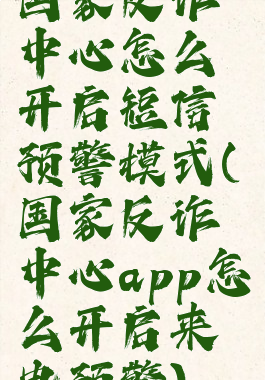 国家反诈
中心怎么
开启短信
预警模式(
国家反诈
中心app怎
么开启来
电预警)